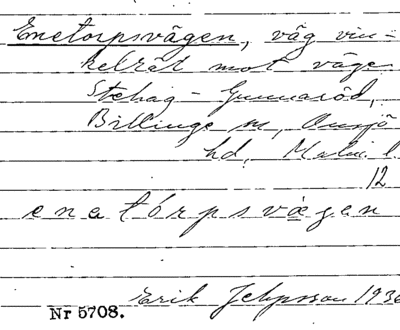 Enetorpsvägen, väg vin-
kelrät mot väge
Stehag - Gunnaröd,
Billinge sn, Onsjö
hd, Malm. l.
12
enatórpsvägen
Erik Jeppsson 1936
Nr 5708.